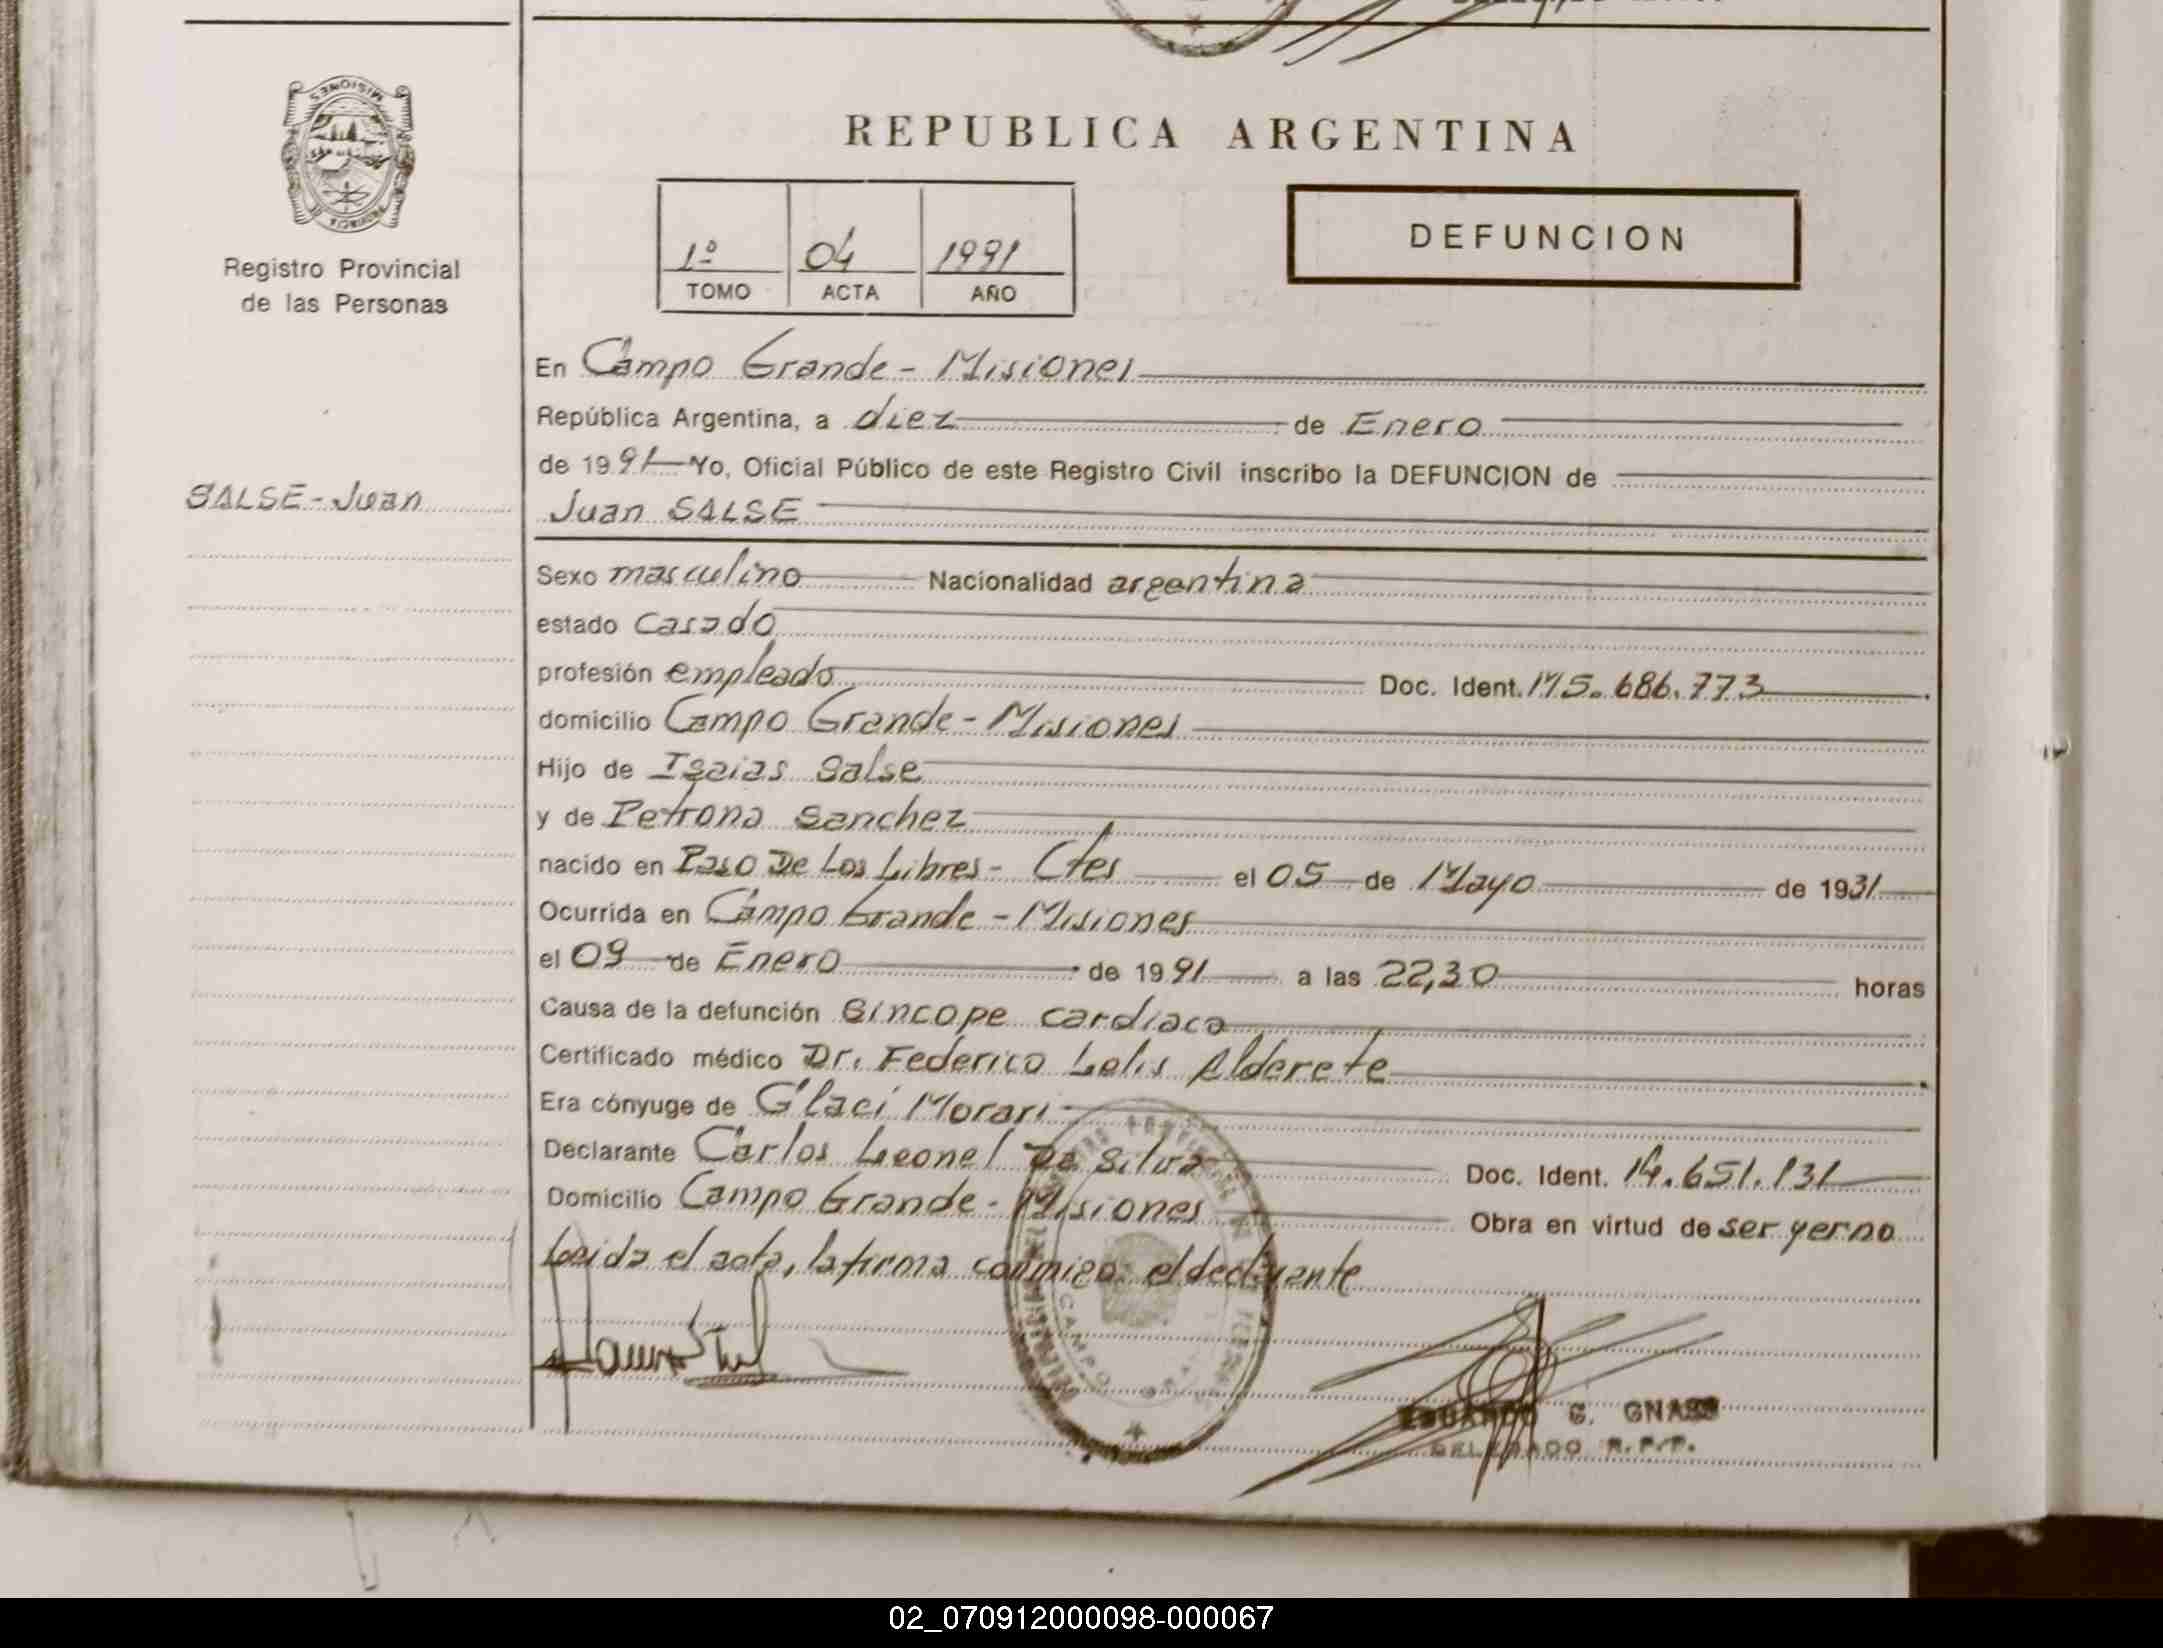 MISIONES
PROVINCIA DE
Registro Provincial
de las Personas
SALSE - Juan
REPUBLICA ARGENTINA
1º 04 1991
TOMO ACTA AÑO
DEFUNCION
En Campo Grande - Misiones
República Argentina, a diez de Enero
de 1991 Yo, Oficial Público de este Registro Civil inscribo la DEFUNCION de
Juan SALSE
Sexo masculino Nacionalidad argentina
estado Casado
profesión empleado Doc. Ident. M5.686.773
domicilio Campo Grande - Misiones
Hijo de Isaias Salse
y de Petrona Sanchez
nacido en Paso De Los Libres - Ctes el 05 de Mayo de 1931
Ocurrida en Campo Grande - Misiones
el 09 de Enero de 1991 a las 22,30 horas
Causa de la defunción Sincope cardiaco
Certificado médico Dr. Federico Lelis Alderete
Era cónyuge de Glaci Morari
Declarante Carlos Leonel Da Silva Doc. Ident. 14.651.131
Domicilio Campo Grande - Misiones Obra en virtud de ser yerno
Leida el acta, la firma conmigo el declarante
CAMPO
EDUARDO G. GNASS
DELEGADO R.P.P.
02_070912000098-000067